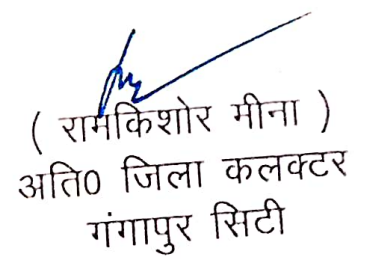 ( रामकिशोर मीना )
अति0 जिला कलक्टर
गंगापुर सिटी